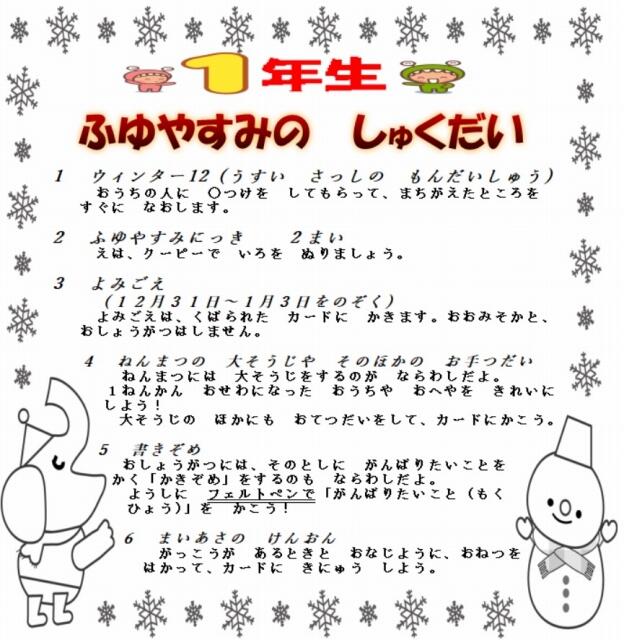 1年生
ふゆやすみの しゅくだい
1 ウィンター12(うすい さっしの もんだいしゅう)
おうちの人に ○つけを してもらって、まちがえたところを
すぐに なおします。
2 ふゆやすみにっき 2まい
えは、クーピーで いろを ぬりましょう。
3 よみごえ
(12月31日~1月3日をのぞく)
よみごえは、くばられた カードに かきます。おおみそかと、
おしょうがつはしません。
4 ねんまつの 大そうじや そのほかの お手つだい
ねんまつには 大そうじをするのが ならわしだよ。
1ねんかん おせわになった おうちや おへやを きれいに
しよう!
大そうじの ほかにも おてつだいをして、カードにかこう。
5 書きぞめ
おしょうがつには、そのとしに がんばりたいことを
かく「かきぞめ」をするのも ならわしだよ。
ようしに フェルトペンで「がんばりたいこと(もく
ひょう)」を かこう!
6 まいあさの けんおん
がっこうが あるときと おなじように、おねつを
はかって、カードに きにゅう しよう。